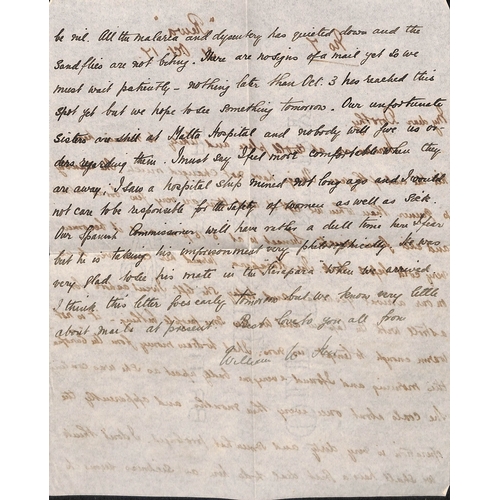 be nil. All the malaria and dysentery has quieted down and the
Sandflies are not biting. There are no signs of a mail yet so we
must wait patiently – nothing later than Oct. 3 has reached this
spot yet but we hope to see something tomorrow. Our unfortunate
Sisters are still at Malta Hospital and nobody will give us or
ders regarding them. I must say I feel more comfortable when they
are away: I saw a hospital ship mined not long ago and I would
not care to be responsible for the safety of women as well as sick.
Our Spanish Commissioner will have rather a dull time here I fear
but he is taking his imprisonment very philosophically. He was
very glad to see his mate in the when we arrived
I think this letter goes early tomorrow but we know very little
about mails at present Best love to you all from
William